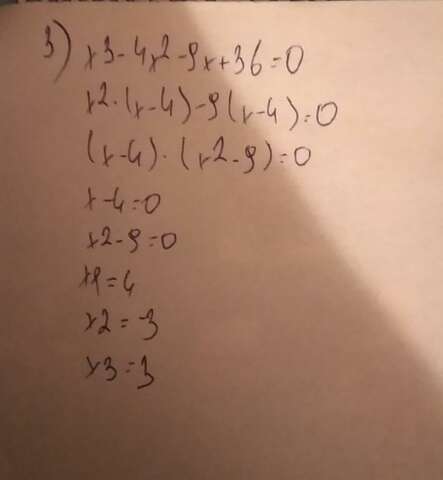 3) x3-4x2-9x+36=0
x2·(x-4)-9(x-4)=0
(x-4)·(x2-9)=0
x-4=0
x2-9=0
x1=4
x2=-3
x3=3